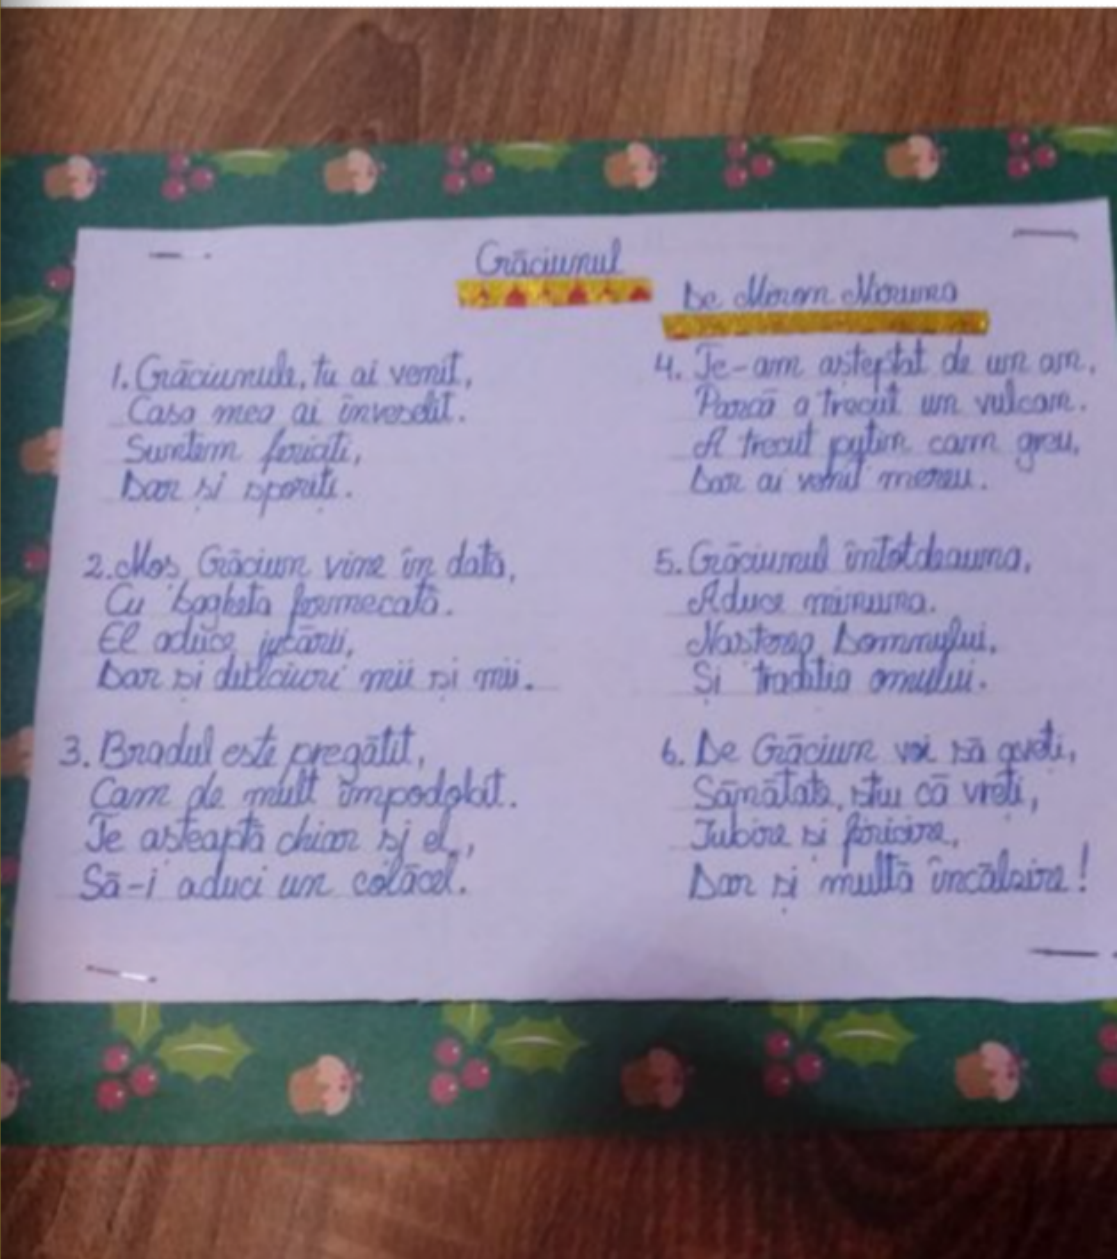 Crăciunul
De Miron Miruna
1. Crăciunule, tu ai venit,
Casa mea ai înveselit.
Suntem fericiți,
Dar și sporiți.
2. Moș Crăciun vine în dată,
Cu bagheta fermecată.
El aduce jucării,
Dar și dulciuri mii și mii.
3. Bradul este pregătit,
Cam de mult împodobit.
Te așteaptă chiar și el,
Să-i aduci un colăcel.
4. Te-am așteptat de un an,
Parcă a trecut un vulcan.
A trecut puțin cam greu,
Dar ai venit mereu.
5. Crăciunul întotdeauna,
Aduce minuna.
Nașterea Domnului,
Și tradiția omului.
6. De Crăciun voi să aveți,
Sănătate, știu că vreți,
Iubire și fericire,
Dar și multă încălzire!